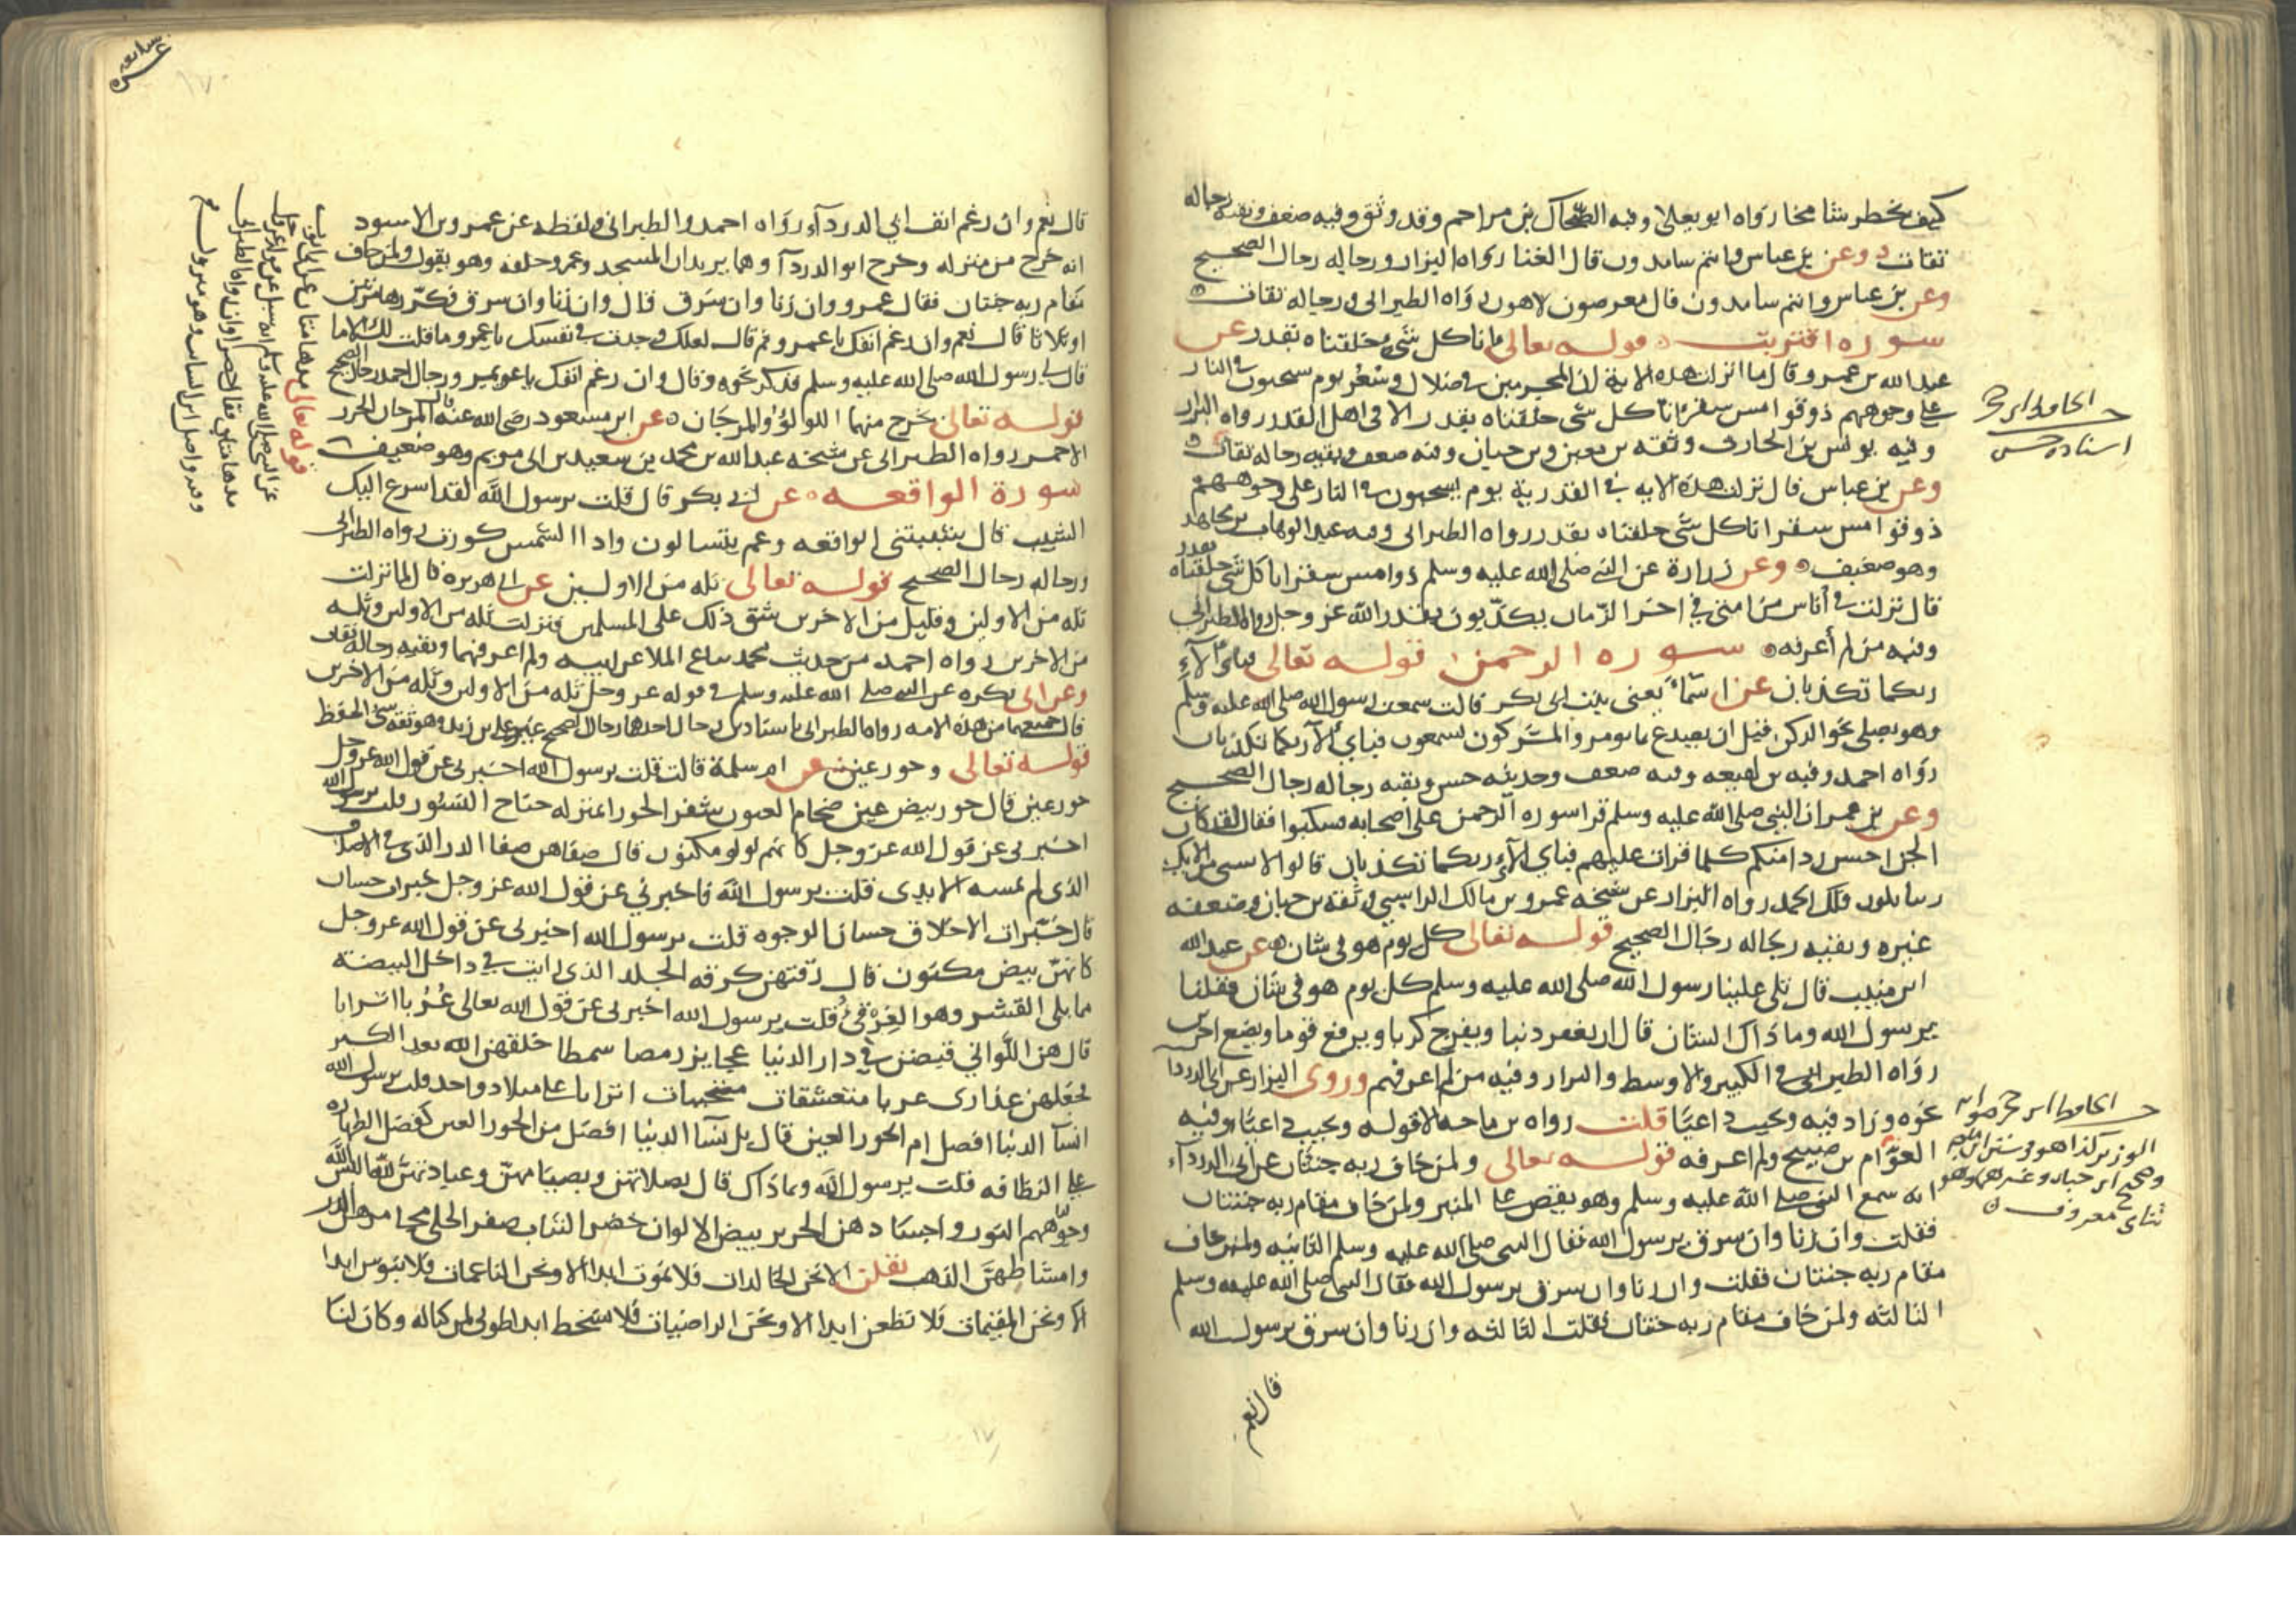 كيف يخطر شامخا رواه ابو يعلى وفيه الضحاك بن مزاحم وقد وثق وفيه ضعف وبقية رجاله
ثقات وعن بن عباس وانتم سامدون قال الغنا رواه البزار ورجاله رجال الصحيح
وعن بن عباس وانتم سامدون قال معرضون لاهون رواه الطبراني ورجاله ثقات
سوره اقتربت قوله تعالى انا كل شي خلقناه بقدر عن
عبد الله بن عمرو قال ما انزلت هذه الاية ان المجرمين في ضلال وسعر يوم يسحبون في النار
على وجوههم ذوقوا مس سقر انا كل شي خلقناه بقدر الا في اهل القدر رواه البزار
وفيه يونس بن الحارث وثقه بن معين وبن حبان وفيه ضعف وبقية رجاله ثقات
وعن بن عباس قال نزلت هذه الايه في القدرية يوم يسحبون في النار على وجوههم
ذوقوا مس سقر انا كل شي خلقناه بقدر رواه الطبراني وفيه عبد الوهاب بن مجاهد
وهو ضعيف وعن زرارة عن النبي صلى الله عليه وسلم ذوقوا مس سقر انا كل شي خلقناه بقدر
قال نزلت في أناس من امتي في اخر الزمان يكذبون بقدر الله عز وجل رواه الطبراني
وفيه من لم أعرفه سوره الرحمن قوله تعالى فباي آلاء
ربكما تكذبان عن اسماء يعني بنت ابي بكر قالت سمعت رسول الله صلى الله عليه وسلم
وهو يصلي نحو الركن قبل ان يصدع بما يومر والمشركون يسمعون فباي آلاء ربكما تكذبان
رواه احمد وفيه بن لهيعه وفيه ضعف وحديثه حسن وبقية رجاله رجال الصحيح
وعن بن عمر ان النبي صلى الله عليه وسلم قرا سوره الرحمن على اصحابه فسكتوا فقال لقد كان
الجن احسن ردا منكم كلما قرات عليهم فباي الآء ربكما تكذبان قالوا لا بشي من الايك
ربنا نكذب فلك الحمد رواه البزار عن شيخه عمرو بن مالك الراسبي وثقه بن حبان وضعفه
غيره وبقية رجاله رجال الصحيح قوله تعالى كل يوم هو في شان عن عبد الله
ابن منيب قال تلى علينا رسول الله صلى الله عليه وسلم كل يوم هو في شان فقلنا
يرسول الله وما ذاك الشان قال ان يغفر ذنبا ويفرج كربا ويرفع قوما ويضع اخرين
رواه الطبراني في الكبير والاوسط والبزار وفيه من لم اعرفهم وروى البزار عن ابي الدردا
نحوه وزاد فيه ويجيب داعيا قلت رواه بن ماجه الا قوله ويجيب داعيا وفيه
العوام بن صبيح ولم اعرفه قوله تعالى ولمن خاف ربه جنتان عن ابي الدرداء
انه سمع النبي صلى الله عليه وسلم وهو يقص على المنبر ولمن خاف مقام ربه جنتان
فقلت وان زنا وان سرق يرسول الله فقال النبي صلى الله عليه وسلم الثانيه ولمن خاف
مقام ربه جنتان فقلت وان زنا وان سرق يرسول الله فقال النبي صلى الله عليه وسلم
الثالثه ولمن خاف مقام ربه جنتان فقلت الثالثه وان زنا وان سرق يرسول الله
قال نعم
الحافظ ابن حجر
اسناده حسن
الحافظ ابن حجر صوابه
الوزير كذا هو في سنن ابن ماجه
وصحيح ابن حبان وغيرهما وهو
شامي معروف
سابعه
عشره
١٧٠
قال نعم وان رغم انف ابي الدرداء رواه احمد والطبراني ولفظه عن عمرو بن الاسود
انه خرج من منزله وخرج ابو الدرداء وهما يريدان المسجد وعمرو خلفه وهو يقول ولمن خاف
مقام ربه جنتان فقال عمرو وان زنا وان سرق قال وان زنا وان سرق فكررها مرتين
او ثلاثا قال نعم وان رغم انفك يا عمرو ثم قال لعلك وجدت في نفسك يا عمرو ما قلت لك الا ما
قال لي رسول الله صلى الله عليه وسلم فذكر نحوه وقال وان رغم انفك يا عويمر ورجال احمد رجال الصحيح
قوله تعالى يخرج منهما اللولؤ والمرجان عن ابن مسعود رضي الله عنه قال المرجان الخرز
الاحمر رواه الطبراني عن شيخه عبد الله بن محمد بن سعيد بن ابي مريم وهو ضعيف
سورة الواقعه عن ابي بكر قال قلت يرسول الله لقد اسرع اليك
الشيب قال شيبتني الواقعه وعم يتسالون واذا الشمس كورت رواه الطبراني
ورجاله رجال الصحيح قوله تعالى ثله من الاولين عن ابي هريره قال لما نزلت
ثله من الاولين وقليل من الاخرين شق ذلك على المسلمين فنزلت ثله من الاولين وثله
من الاخرين رواه احمد من حديث محمد بياع الملا عن ابيه ولم اعرفهما وبقية رجاله ثقات
وعن ابي بكره عن النبي صلى الله عليه وسلم في قوله عز وجل ثله من الاولين وثله من الاخرين
قال جميعهما من هذه الامه رواه الطبراني باسنادين رجال احدهما رجال الصحيح غير علي بن زيد وهو ثقة سيئ الحفظ
قوله تعالى وحور عين عن ام سلمة قالت قلت يرسول الله اخبرني عن قول الله عز وجل
حور عين قال حور بيض عين ضخام العيون شفر الحورا بمنزله جناح النسور قلت يرسول الله
اخبرني عن قول الله عز وجل كانهم لولو مكنون قال صفاهن صفا الدر الذي في الاصداف
الذي لم تمسه الايدي قلت يرسول الله فاخبرني عن قول الله عز وجل خيرات حسان
قال خيرات الاخلاق حسان الوجوه قلت يرسول الله اخبرني عن قول الله عز وجل
كانهن بيض مكنون قال رقتهن كرقه الجلد الذي رايت في داخل البيضه
مما يلي القشر وهو الغرقئ قلت يرسول الله اخبرني عن قول الله تعالى عربا اترابا
قال هن اللواتي قبضن في دار الدنيا عجايز رمصا شمطا خلقهن الله بعد الكبر
فجعلهن عذارى عربا متعشقات متحببات اترابا على ميلاد واحد قلت يرسول الله
انسآ الدنيا افضل ام الحور العين قال بل نسآ الدنيا افضل من الحور العين كفضل الظهاره
على البطانه قلت يرسول الله وبما ذاك قال بصلاتهن وبصيامهن وعبادتهن لله البس الله
وجوههم النور واجسادهن الحرير بيض الالوان خضر الثياب صفر الحلي مجامرهن الدر
وامشاطهن الذهب تقلن الا نحن الخالدات فلا نموت ابدا الا ونحن الناعمات فلا نبوس ابدا
الا ونحن المقيمات فلا نظعن ابدا الا ونحن الراضيات فلا نسخط ابدا طوبى لمن كنا له وكان لنا
قوله تعالى مدهامتان عن ابي ايوب
عن النبي صلى الله عليه وسلم انه سيل عن قول الله عز وجل
مدهامتان فقال خضراوان رواه الطبراني
وفيه واصل ابن السايب وهو متروك
١٧